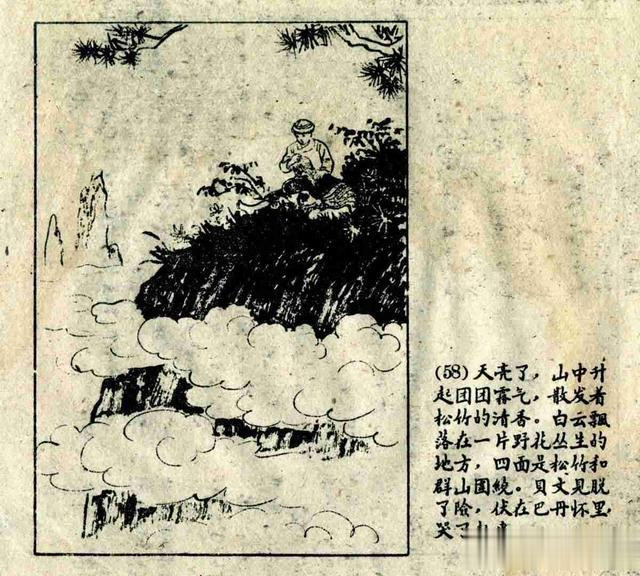 (58) 天亮了，山中升
起团团雾气，散发着
松竹的清香。白云飘
落在一片野花丛生的
地方，四面是松竹和
群山围繞。貝文見脱
了险，伏在巴丹怀里，
哭了起来